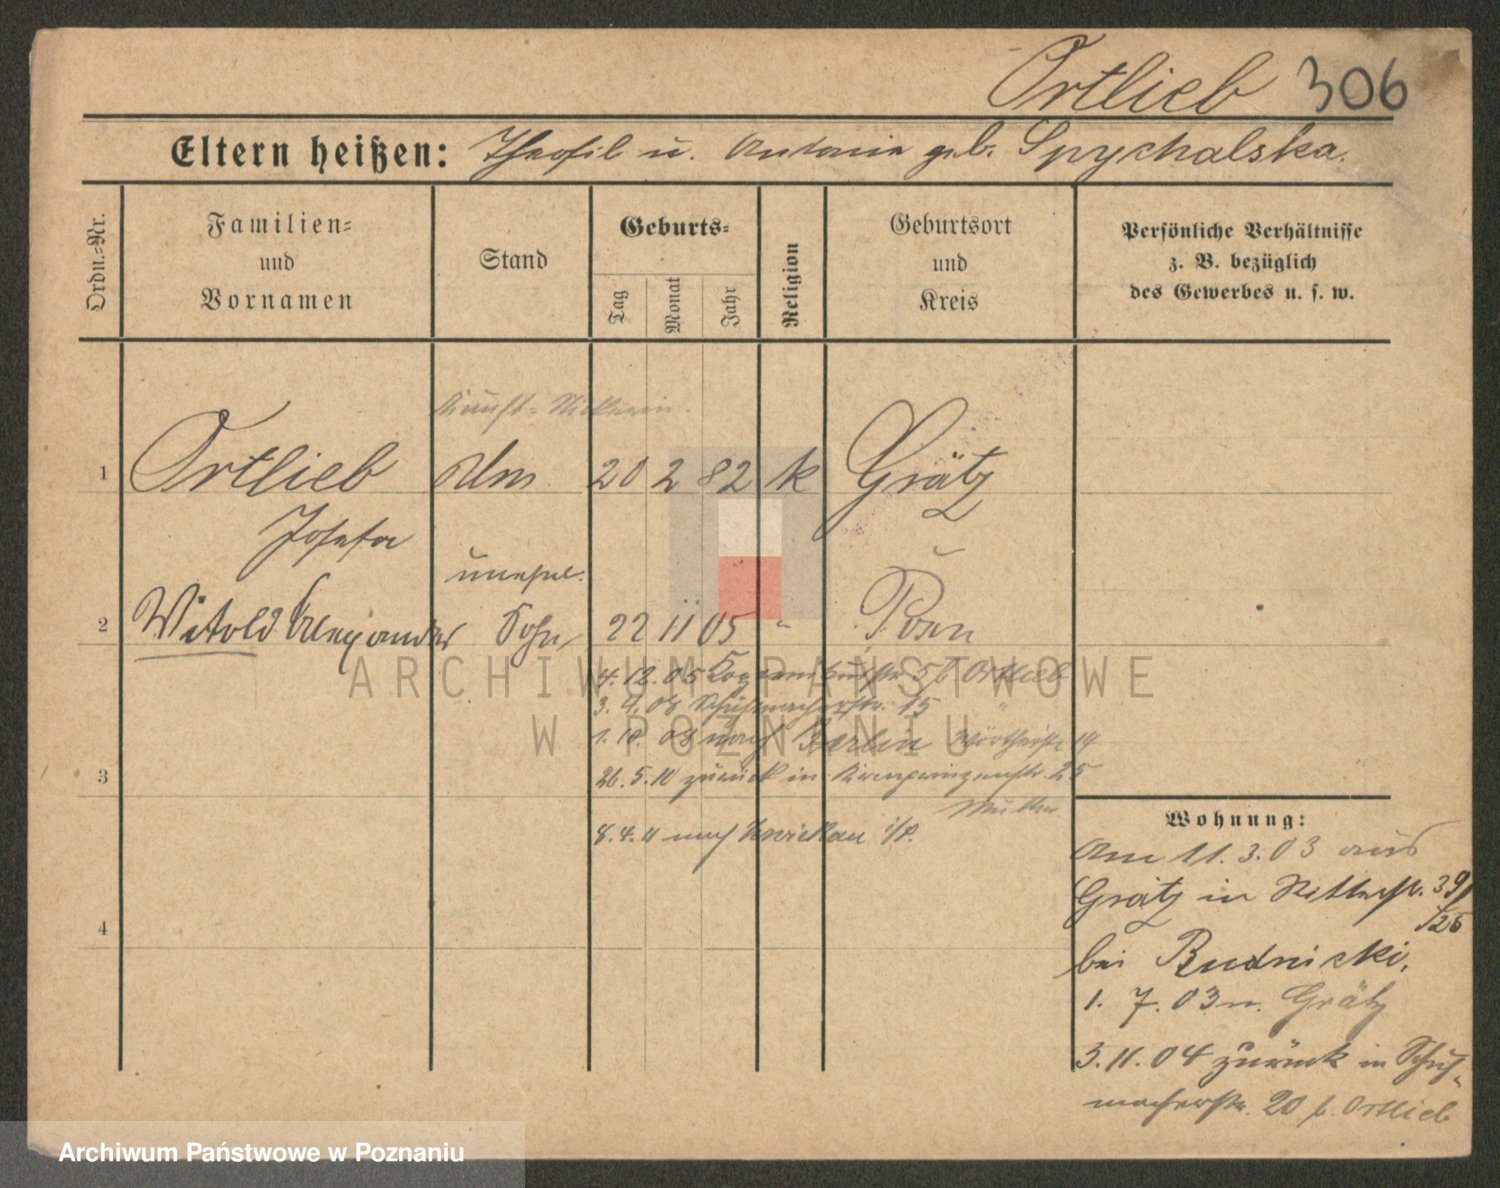 Ortlieb 306
Eltern heißen: Theofil u. Antonie geb. Spychalska.
Ordn.-Nr.
Familien-
und
Vornamen
Stand
Geburts-
Tag
Monat
Jahr
Religion
Geburtsort
und
Kreis
Persönliche Verhältnisse
z. B. bezüglich
des Gewerbes u. s. w.
Kunst-Stickerin
1 Ortlieb 20 2 82 k Grätz
Josefa
unehel.
2 Witold Alexander Sohn 22 11 05 " Posen
4.12.05 56 Ortlieb
3.4.08 Schuhmacherstr. 15 "
1.10.08 nach Berlin Wörtherstr. 14
3 26.5.10 zurück in Kronprinzenstr. 25
Mutter
8.4.11 nach Zwickau
4
Wohnung:
Am 11.3.03 aus
Grätz in Ritterstr. 39/
25
bei Budnicki,
1. 7. 03 n. Grätz
3.11.04 zurück in Schuh-
macherstr. 20 b. Ortlieb
ARCHIWUM PAŃSTWOWE
W POZNANIU
Archiwum Państwowe w Poznaniu